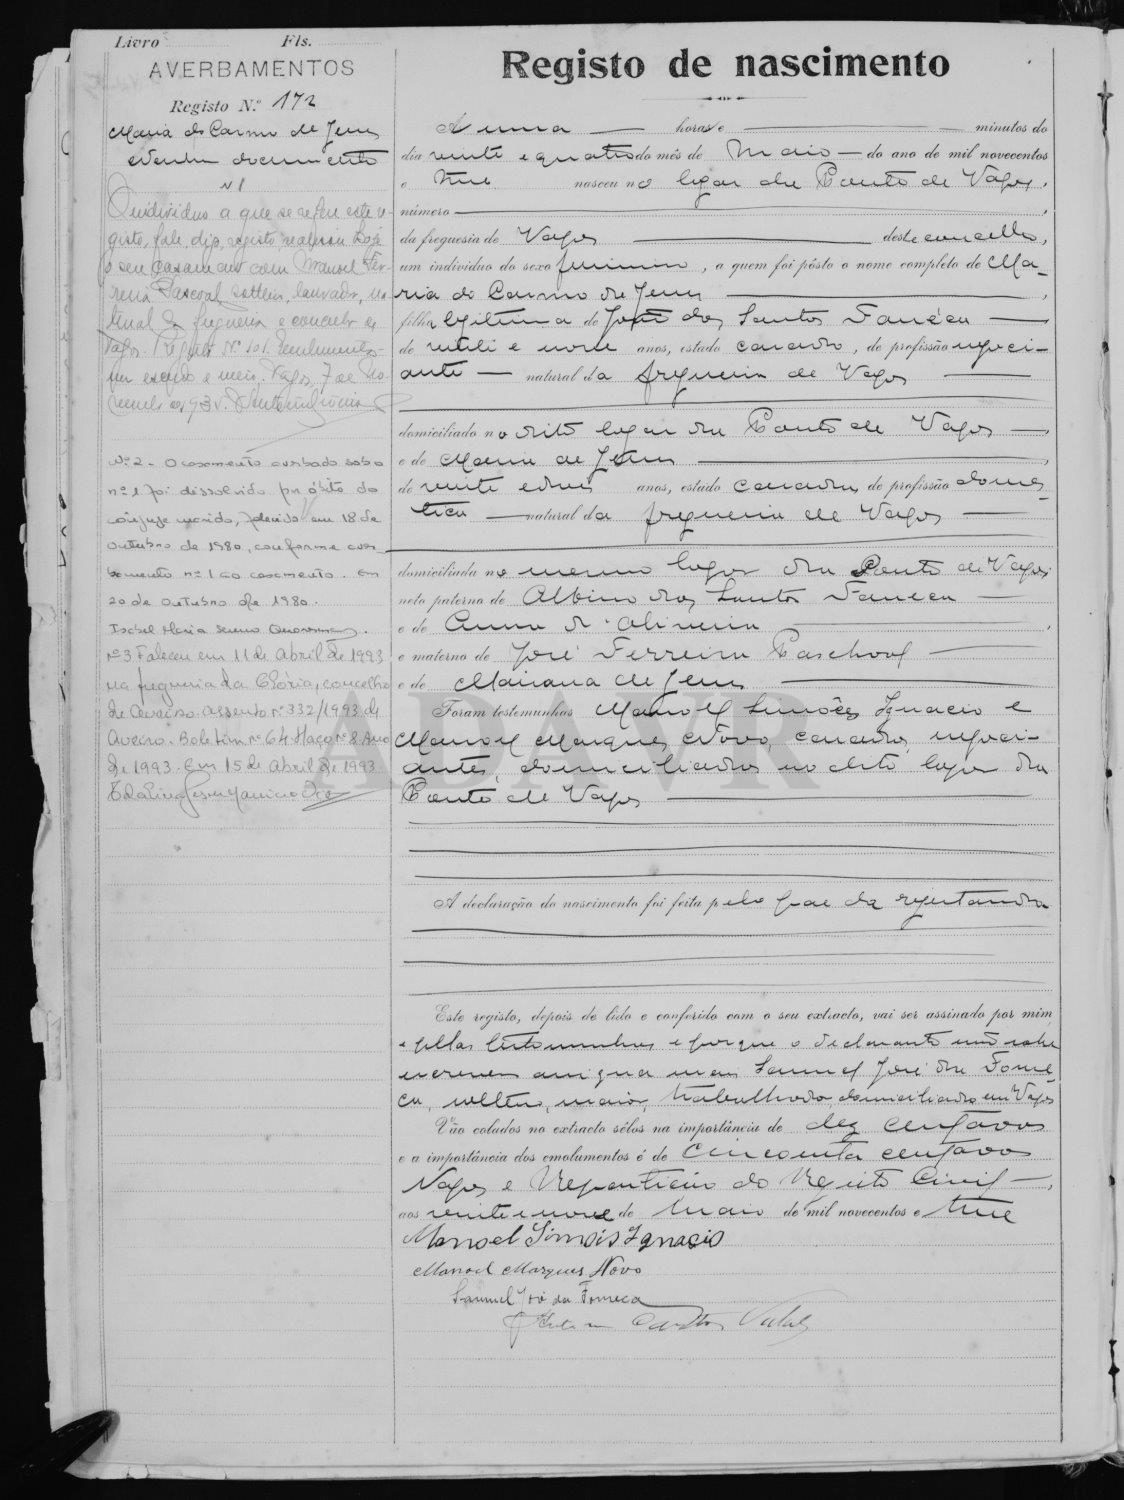 Livro Fls.
AVERBAMENTOS
Registo N.º 172
Maria do Carmo de Jesus
Nenhum documento
Nº 1
O individuo a que se refere este re-
gisto, fale, digo, registo realisou hoje
o seu casamento com Manuel Fer-
reira Pascoal solteiro, lavrador, na-
tural da freguesia e concelho de
Vagos. Registo Nº 101. Emolumentos
um escudo e meio. Vagos, 7 de No-
vembro de 193
Nº 2 - O casamento averbado sob o
nº 1 foi dissolvido por óbito do
cônjuge marido, falecido em 18 de
Outubro de 1980, conforme aver-
bamento nº 1 ao casamento. Em
20 de Outubro de 1980.
Isabel Maria
nº 3 Faleceu em 11 de Abril de 1993
na freguesia da Glória, concelho
de Aveiro. Assento nº 332/1993 de
Aveiro. Boletim nº 64 Maço nº 8 Ano
de 1993. Em 15 de Abril de 1993
Registo de nascimento
A uma horas e minutos do
dia vinte e quatro do mês de Maio do ano de mil novecentos
e treze nasceu no logar da Ponte de Vagos,
número
da freguesia de Vagos deste concelho,
um individuo do sexo feminino, a quem foi pôsto o nome completo de Ma-
ria do Carmo de Jesus
filha legitima de João dos Santos Faneca
de vinte e nove anos, estado casado, de profissão negoci-
ante natural da freguesia de Vagos
domiciliado no dito logar da Ponte de Vagos
e de Maria de Jesus
de vinte e dois anos, estado casada, de profissão domes-
tica natural da freguesia de Vagos
domiciliada no mesmo logar da Ponte de Vagos
neto paterno de Albino dos Santos Faneca
e de Anna d'Oliveira
e materno de José Ferreira Paschoal
e de Mariana de Jesus
Foram testemunhas Manoel Simões Ignacio e
Manoel Marques Novo, casados, negoci-
antes, domiciliados no dito logar da
Ponte de Vagos
ADAVR
A declaração do nascimento foi feita pelo pae da registanda
Este registo, depois de lido e conferido com o seu extracto, vai ser assinado por mim
e pelas testemunhas e porque o declarante não sabe
escrever assigna mais Samuel José da Fonse-
ca, solteiro, maior, trabalhador, domiciliado em Vagos
Vão colados no extracto sêlos na importância de dez centavos
e a importância dos emolumentos é de cincoenta centavos
Vagos e Repartição do Registo Civil,
aos vinte e nove de Maio de mil novecentos e treze
Manoel Simóis Ignacio
Manoel Marques Novo
Samuel José da Fonseca